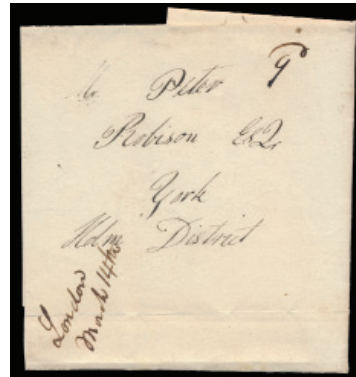 9
Peter
Robison Esqr
York
Home District
London
March 14th